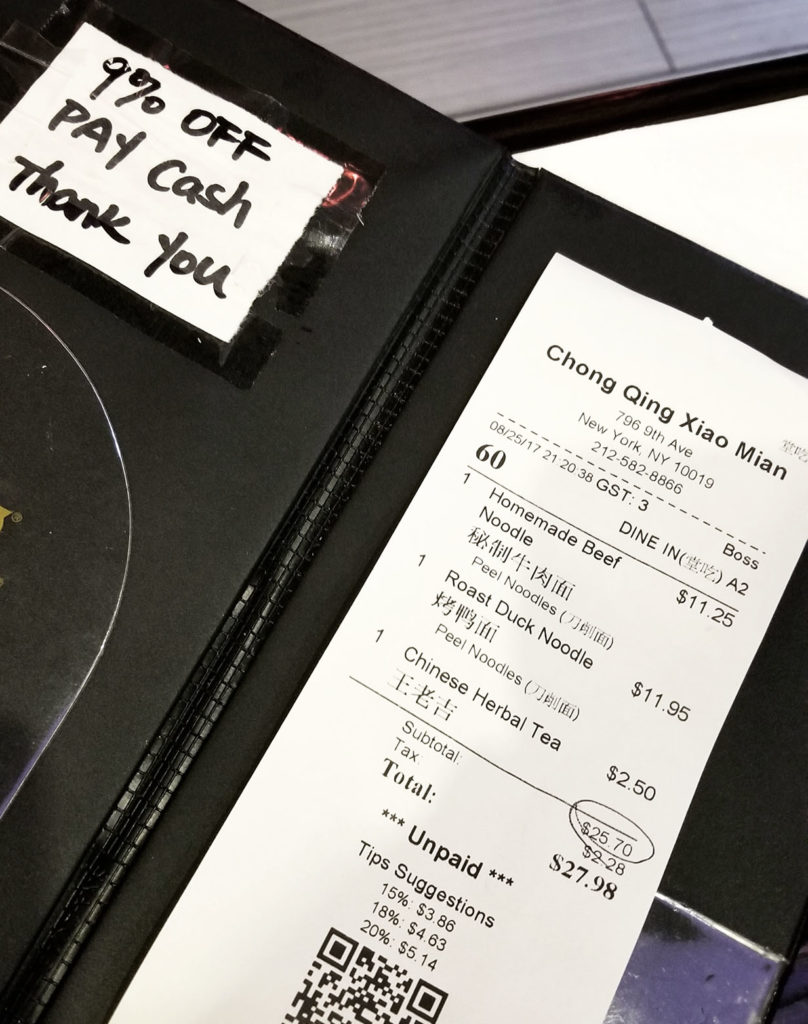 9% OFF
PAY Cash
Thank You
堂吃
Chong Qing Xiao Mian
796 9th Ave
New York, NY 10019
212-582-8866
08/25/17 21:20:38 GST: 3 Boss
60 DINE IN(堂吃) A2
1 Homemade Beef $11.25
Noodle
秘制牛肉面
Peel Noodles (刀削面)
1 Roast Duck Noodle $11.95
烤鸭面
Peel Noodles (刀削面)
1 Chinese Herbal Tea $2.50
王老吉
Subtotal: $25.70
Tax: $2.28
Total: $27.98
*** Unpaid ***
Tips Suggestions
15%: $3.86
18%: $4.63
20%: $5.14